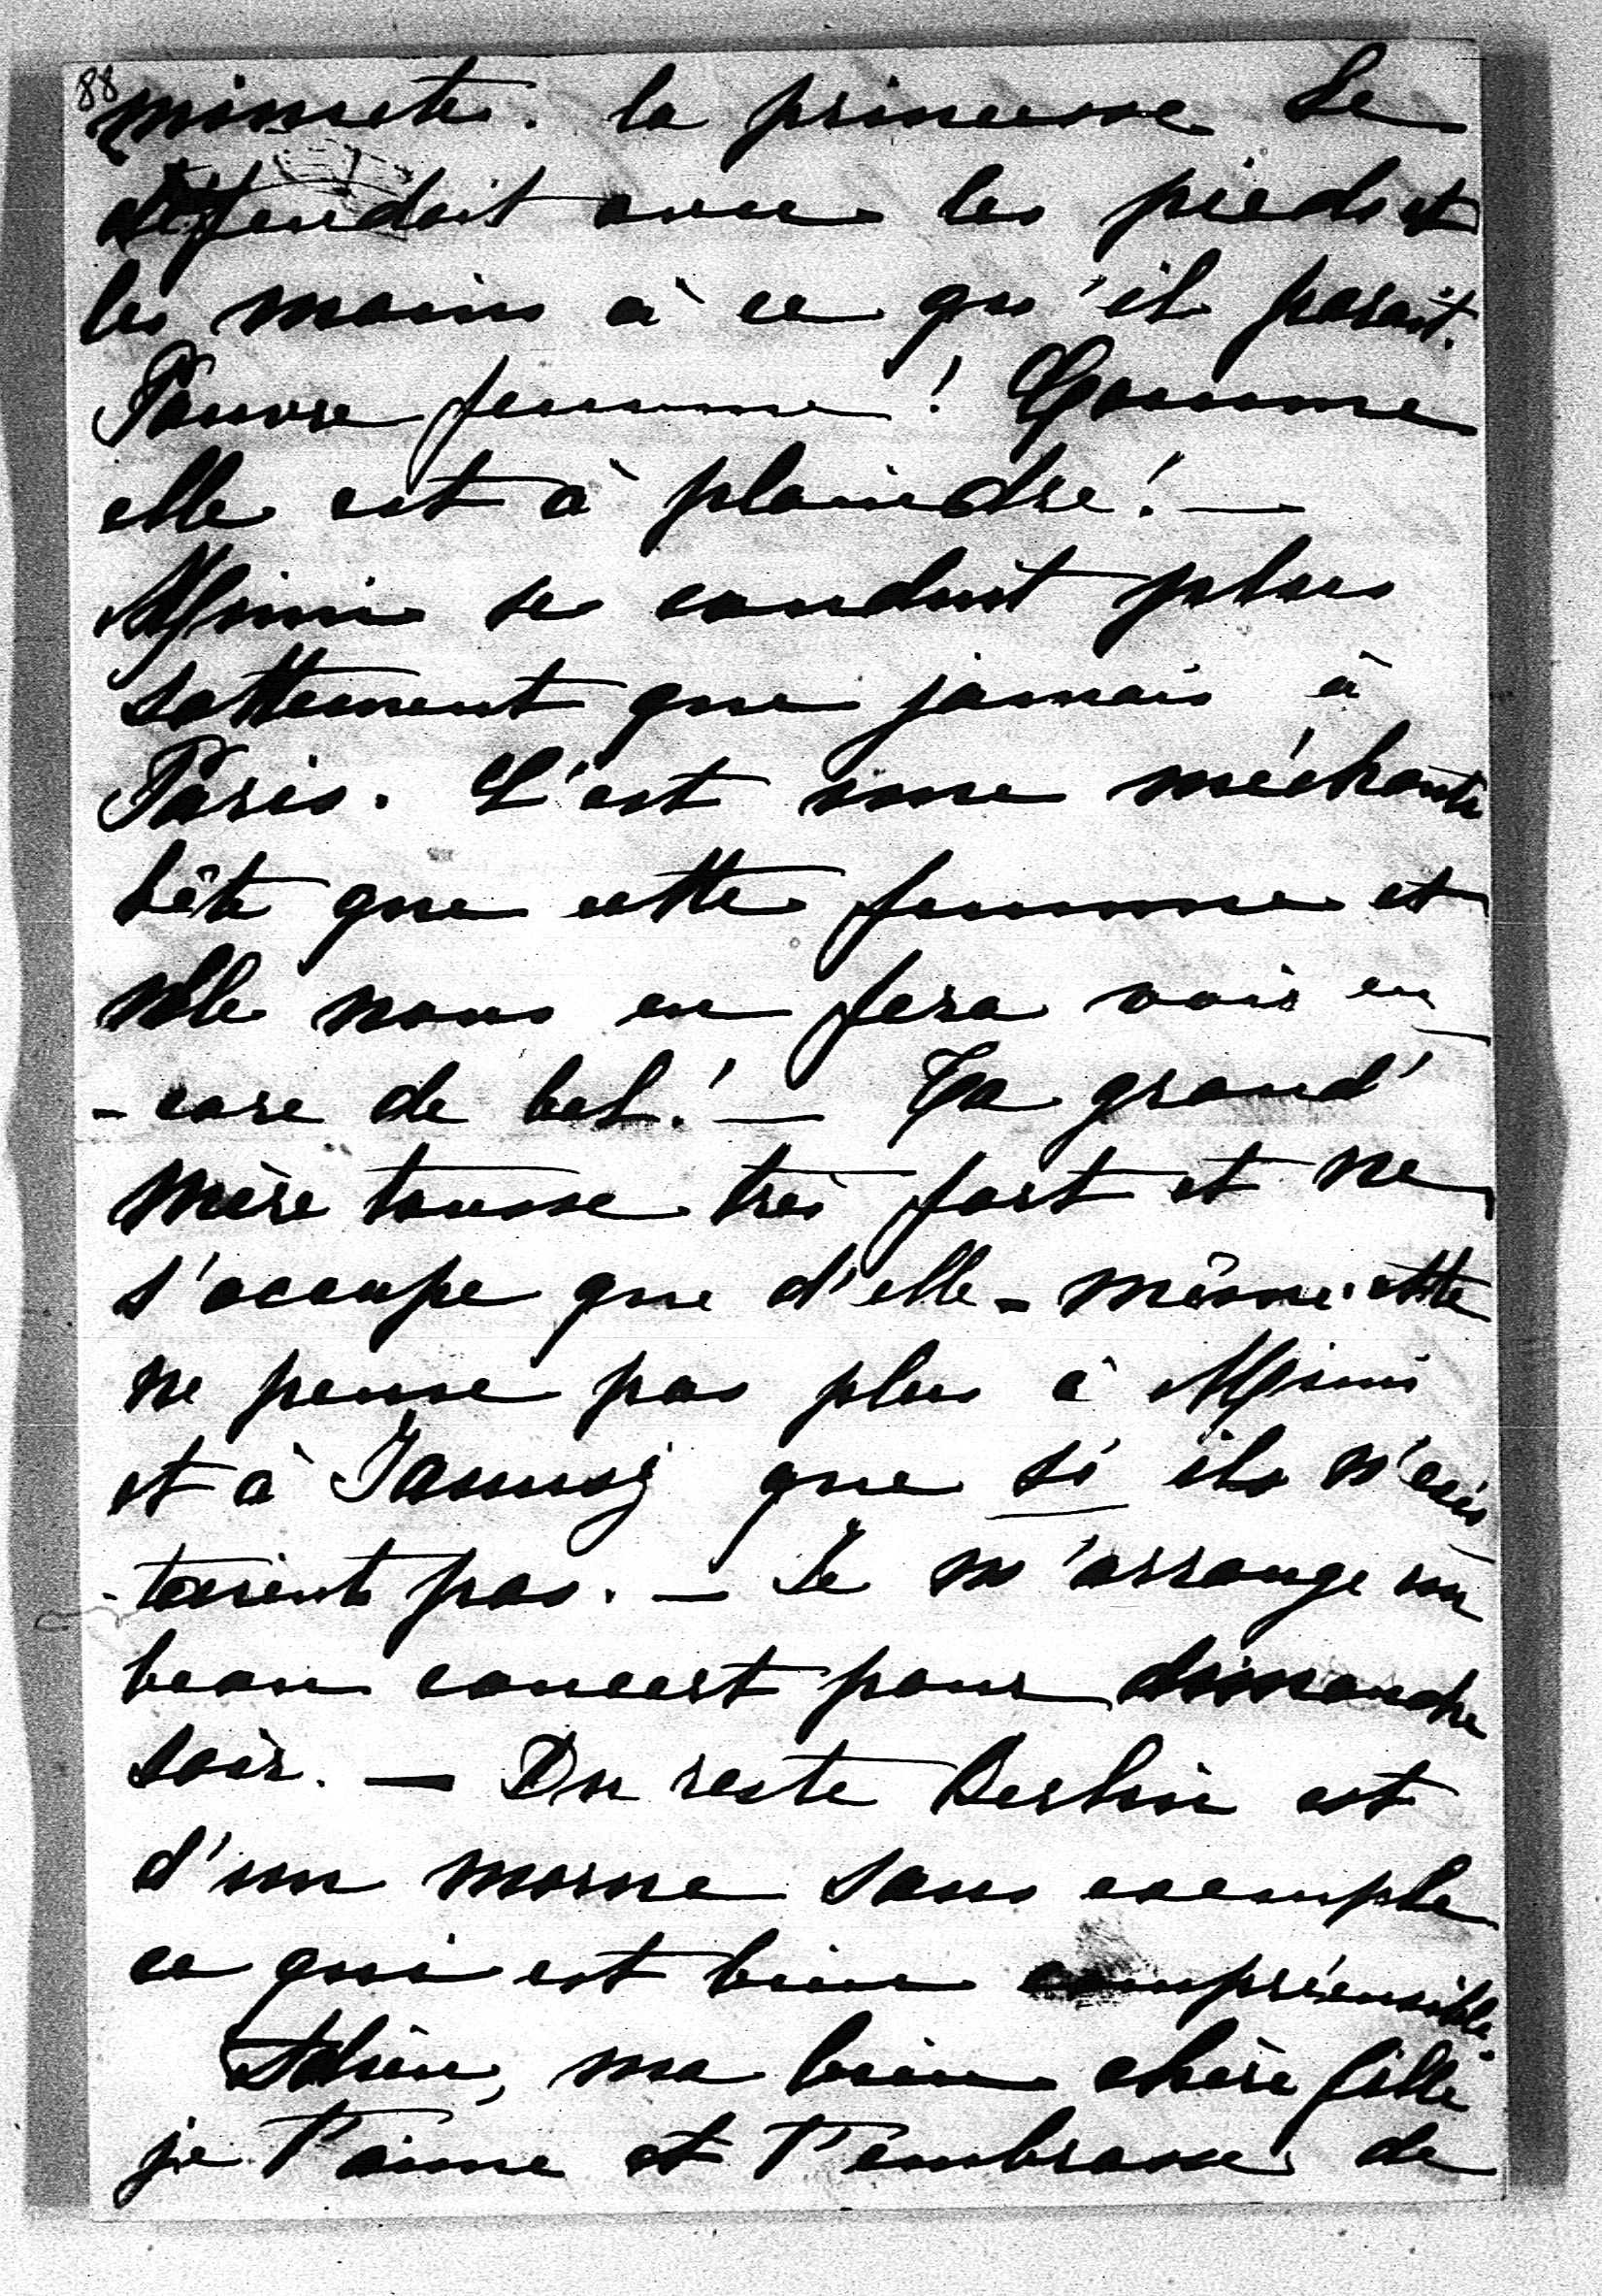 88
minutes. la princesse se
défendait avec les pieds et
les mains à ce qu'il paraît.
Pauvre femme! Comme
elle est à plaindre! —
Mimi se conduit plus
sottement que jamais à
Paris. C'est une méchante
bête que cette femme et
elle nous en fera voir en
- core de bel! — Ta grand'
mère tousse très fort et ne
s'occupe que d'elle-même. elle
ne pense pas plus à Mimi
et à Janusz que si ils n'exis
- taient pas. — Je m'arrange un
beau concert pour dimanche
soir. — Du reste Berlin est
d'un morne sans exemple
ce qui est bien compréensible.
Adieu, ma bien chère fille
je t'aime et t'embrasse de